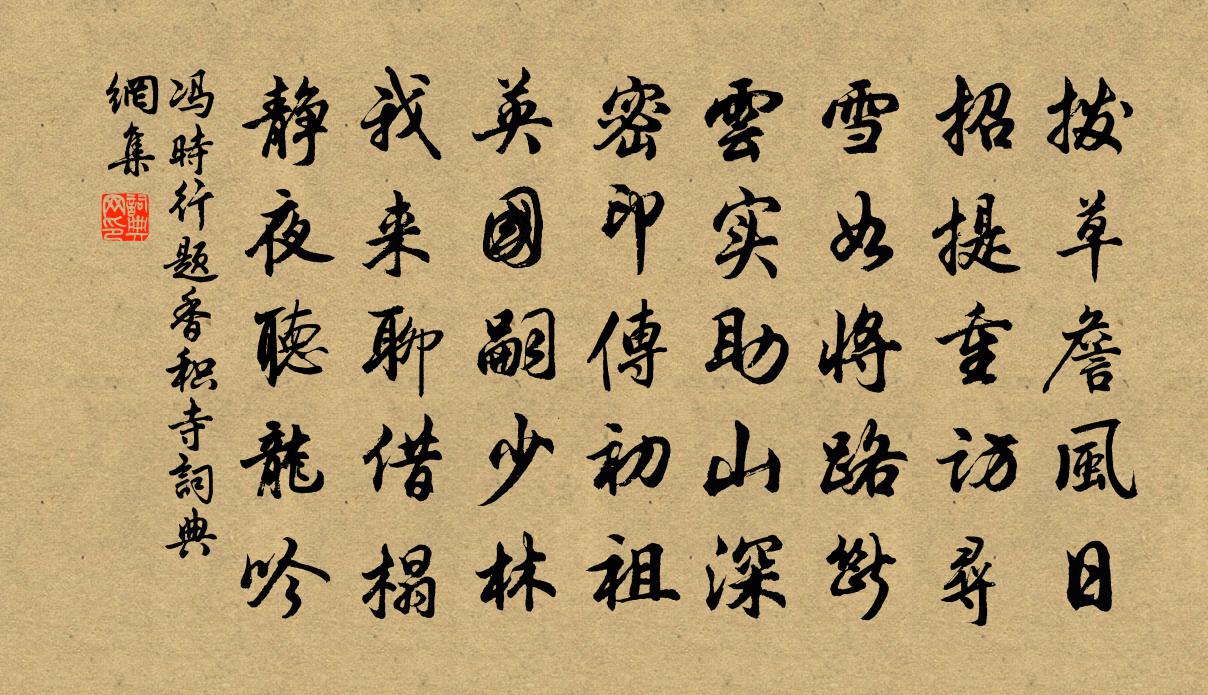 拨草詹風日
招提重访尋
雪如将路斷
雲实助山深
密印傳初祖
英國嗣少林
我来聊借榻
静夜聽龍吟
冯時行题香积寺詞典
網集
詞典
网印